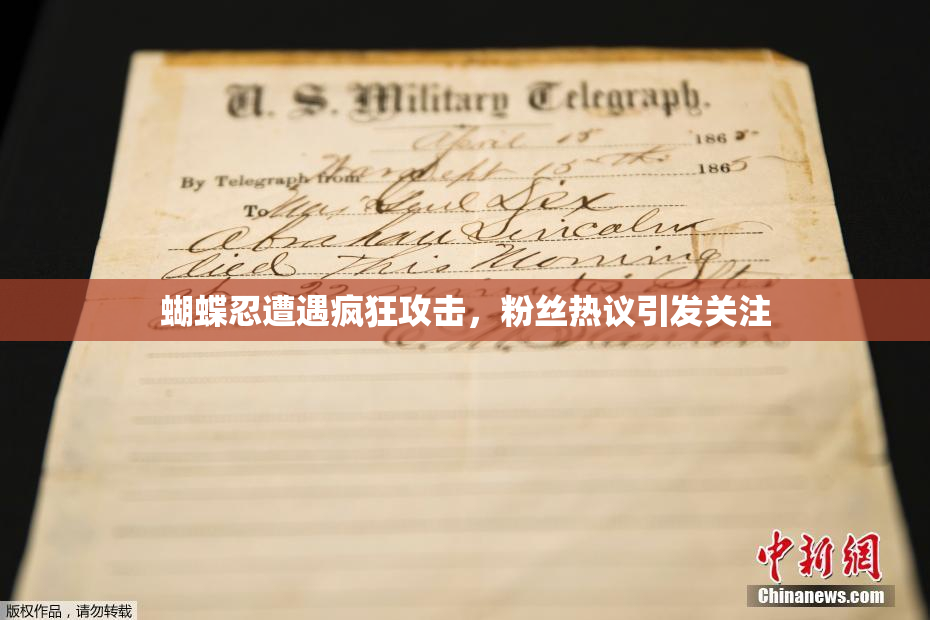 U. S. Military Telegraph.
April 15 1865
By Telegraph from Wash Dept 15th 1865
To Maj Genl Dix
Abraham Lincoln
died This Morning
at 22 minutes after
蝴蝶忍遭遇疯狂攻击，粉丝热议引发关注
E. M. Stanton
中新网
Chinanews.com
版权作品，请勿转载